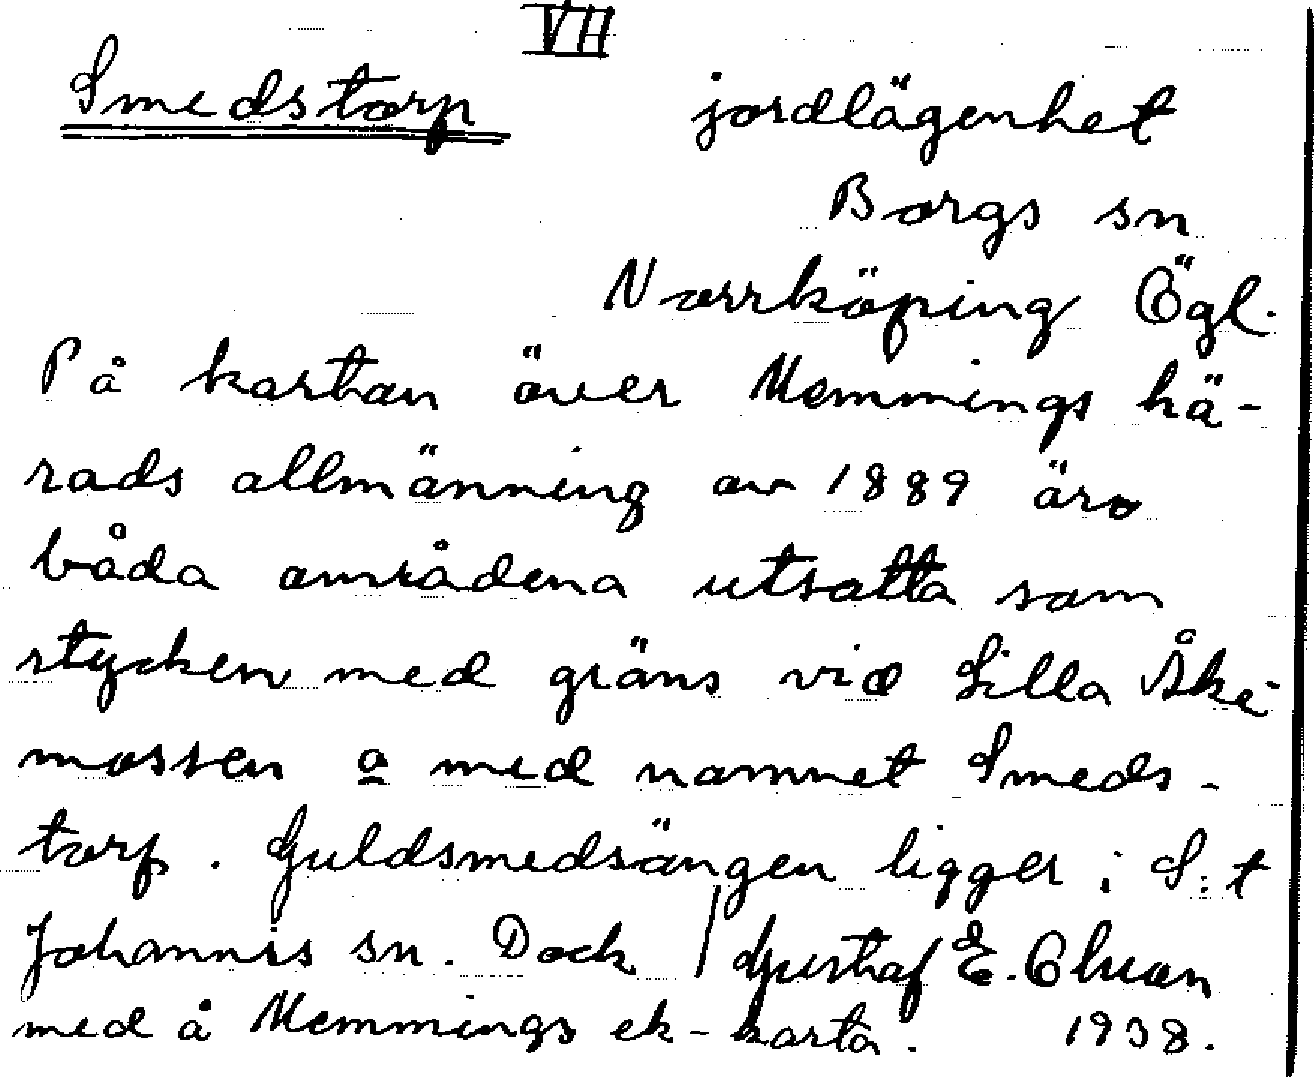 VII
Smedstorp jordlägenhet
Borgs sn
Norrköping Ögl.
På kartan över Memmings hä-
rads allmänning av 1889 äro
båda områdena utsatta som
stycken med gräns vid Lilla Åke-
mossen o med namnet Smeds-
torp. Guldsmedsängen ligger i S:t
Johannis sn. Dock / Gustaf E.
med å Memmings ek-karta. 1938.